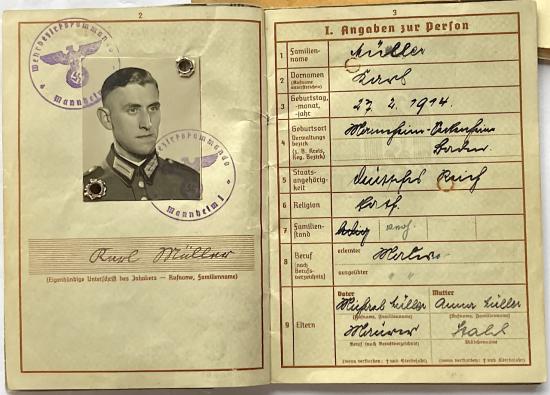 2
Wehrbezirkskommando
Mannheim I
Wehrbezirkskommando
Mannheim I
Karl Müller
(Eigenhändige Unterschrift des Inhabers — Rufname, Familienname)
3
I. Angaben zur Person
1 Familien-
name
Müller
2 Vornamen
(Rufname
unterstreichen)
Karl
3 Geburtstag,
-monat,
-jahr
27. 2. 1914.
4 Geburtsort
Verwaltungs-
bezirk
(z. B. Kreis,
Reg.-Bezirk)
Mannheim-
Baden
5 Staats-
angehörig-
keit
Deutsches Reich
6 Religion
Kath.
7 Familien-
stand
ledig
8 Beruf
(nach
Berufs-
verzeichnis)
erlernter
ausgeübter
" "
9 Eltern
Vater
Mutter
Müller
Anna Müller
(Rufname, Familienname)
(Rufname, Familienname)
Maurer
Stahl
Beruf (nach Berufsverzeichnis)
Mädchenname
(wenn verstorben: † und Sterbejahr)
(wenn verstorben: † und Sterbejahr)